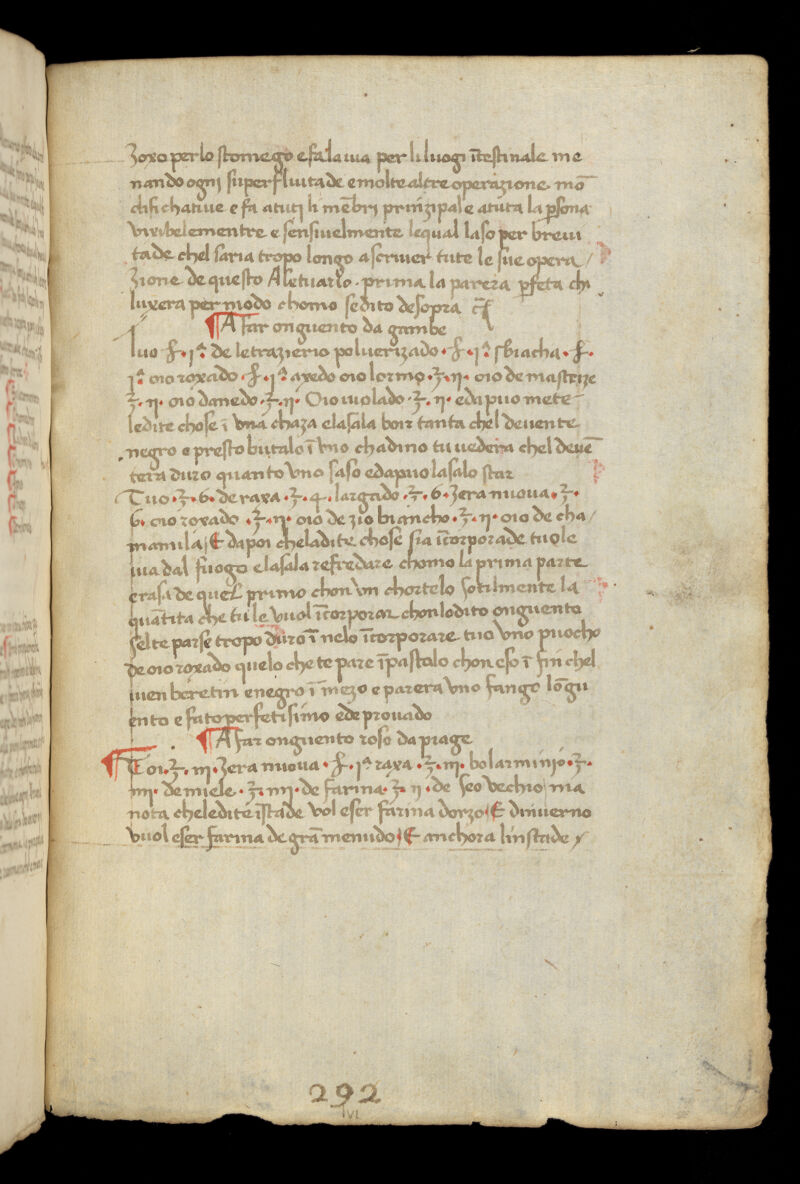 zoxo per lo stomego e fa laiua per li luogi ĩtestinale me
nando ogni superfluitade e molte altre operazione mõ
difichatiue e fa a tutj li mẽbrj prinzipal e a tuta la p̱sona
vixibelementre e sensiuelmente le qual laso per breui
tade chel saria tropo longo a scriuer tute le sue opera /
zione de questo Aletuario · prima la parera p̱feta chi
luxera per modo chomo se dito desopra
A far onguento da gambe
luo ℔ · jª de letrazierio poluerizado · ℔ · jª sbiacha · ℔ ·
jª oio roxado · ℔ · jª axedo oio lormo · ʒ · ij · oio de mastize
ʒ · ij · oio danedo · ʒ · ij · Oio uiolado · ʒ · ij · e da puo mete
le dite chose ĩ vna chaza e lasala boir tanta chel deuente
negro e presto butalo ĩ vno chadino tu uedera chel deuẽ
tera duro quanto vno saso e da puo lasalo star
Tuo · ʒ · 6 · de raxa · ʒ · 4 · largado · ʒ · 6 · zera nuoua · ʒ ·
6 · oio roxado · ʒ · ij · oio de zio biancho · ʒ · ij · oio de cha /
mamila E dapoi che ladite chose sia ĩcorporade tuole
uia dal fuogo e lasala refredare chomo la prima parte
e rasa de quel primo chon vn chortelo sotilmente la
quãtita che tu le vuol ĩcorporar chon lo dito onguento
sel te parse tropo duro ĩ nelo ĩcorporare tuo vno puocho
de oio roxado quelo che te pare ĩpastalo chon eso ĩ fin chel
uien beretin e negro ĩ mezo e parera vno fango lõgu
ento e fato perfetisimo e de prouado
A far onguento roso da piage
Toi · ʒ · iij · zera nuoua · ℔ · jª raxa · ʒ · iij · bolarminio · ʒ ·
iiij · de miele · ʒ · iiij · de farina · ʒ · ij · de seo vechio ma
nota che le dite ĩstade vol eser farina dorzo E dinuerno
vuol eser farina de grã menudo E anchora linstade
292